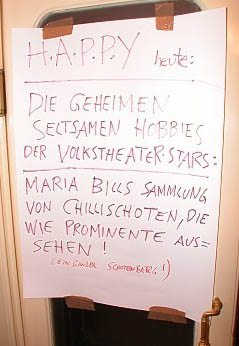 H.A.P.P.Y heute:
DIE GEHEIMEN
SELTSAMEN HOBBIES
DER VOLKSTHEATER-STARS:
MARIA BILLS SAMMLUNG
VON CHILLISCHOTEN, DIE
WIE PROMINENTE AUS=
SEHEN!
(EIN GANZER SCHOTENBERG!)